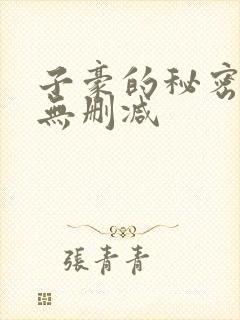 子豪的秘密
無删减
張青青